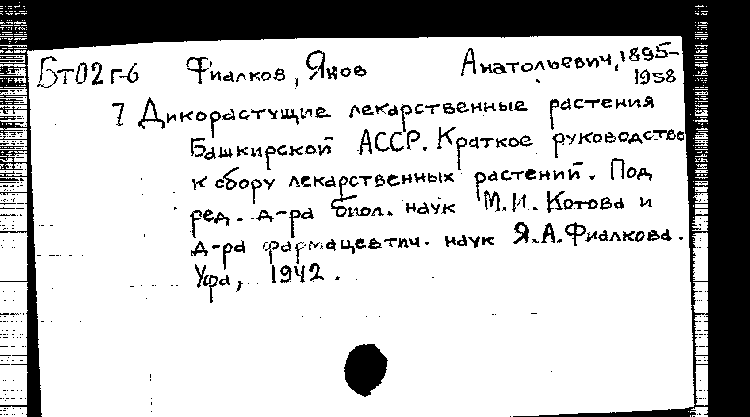 Бт02г-6 Фиалков, Яков Анатольевич, 1895-
1958
7 Дикорастущие лекарственные растения
Башкирской АССР. Краткое руководство
к сбору лекарственных растений. Под
ред. д-ра биол. наук М.И. Котова и
д-ра фармацевтич. наук Я.А. Фиалкова.
Уфа, 1942.